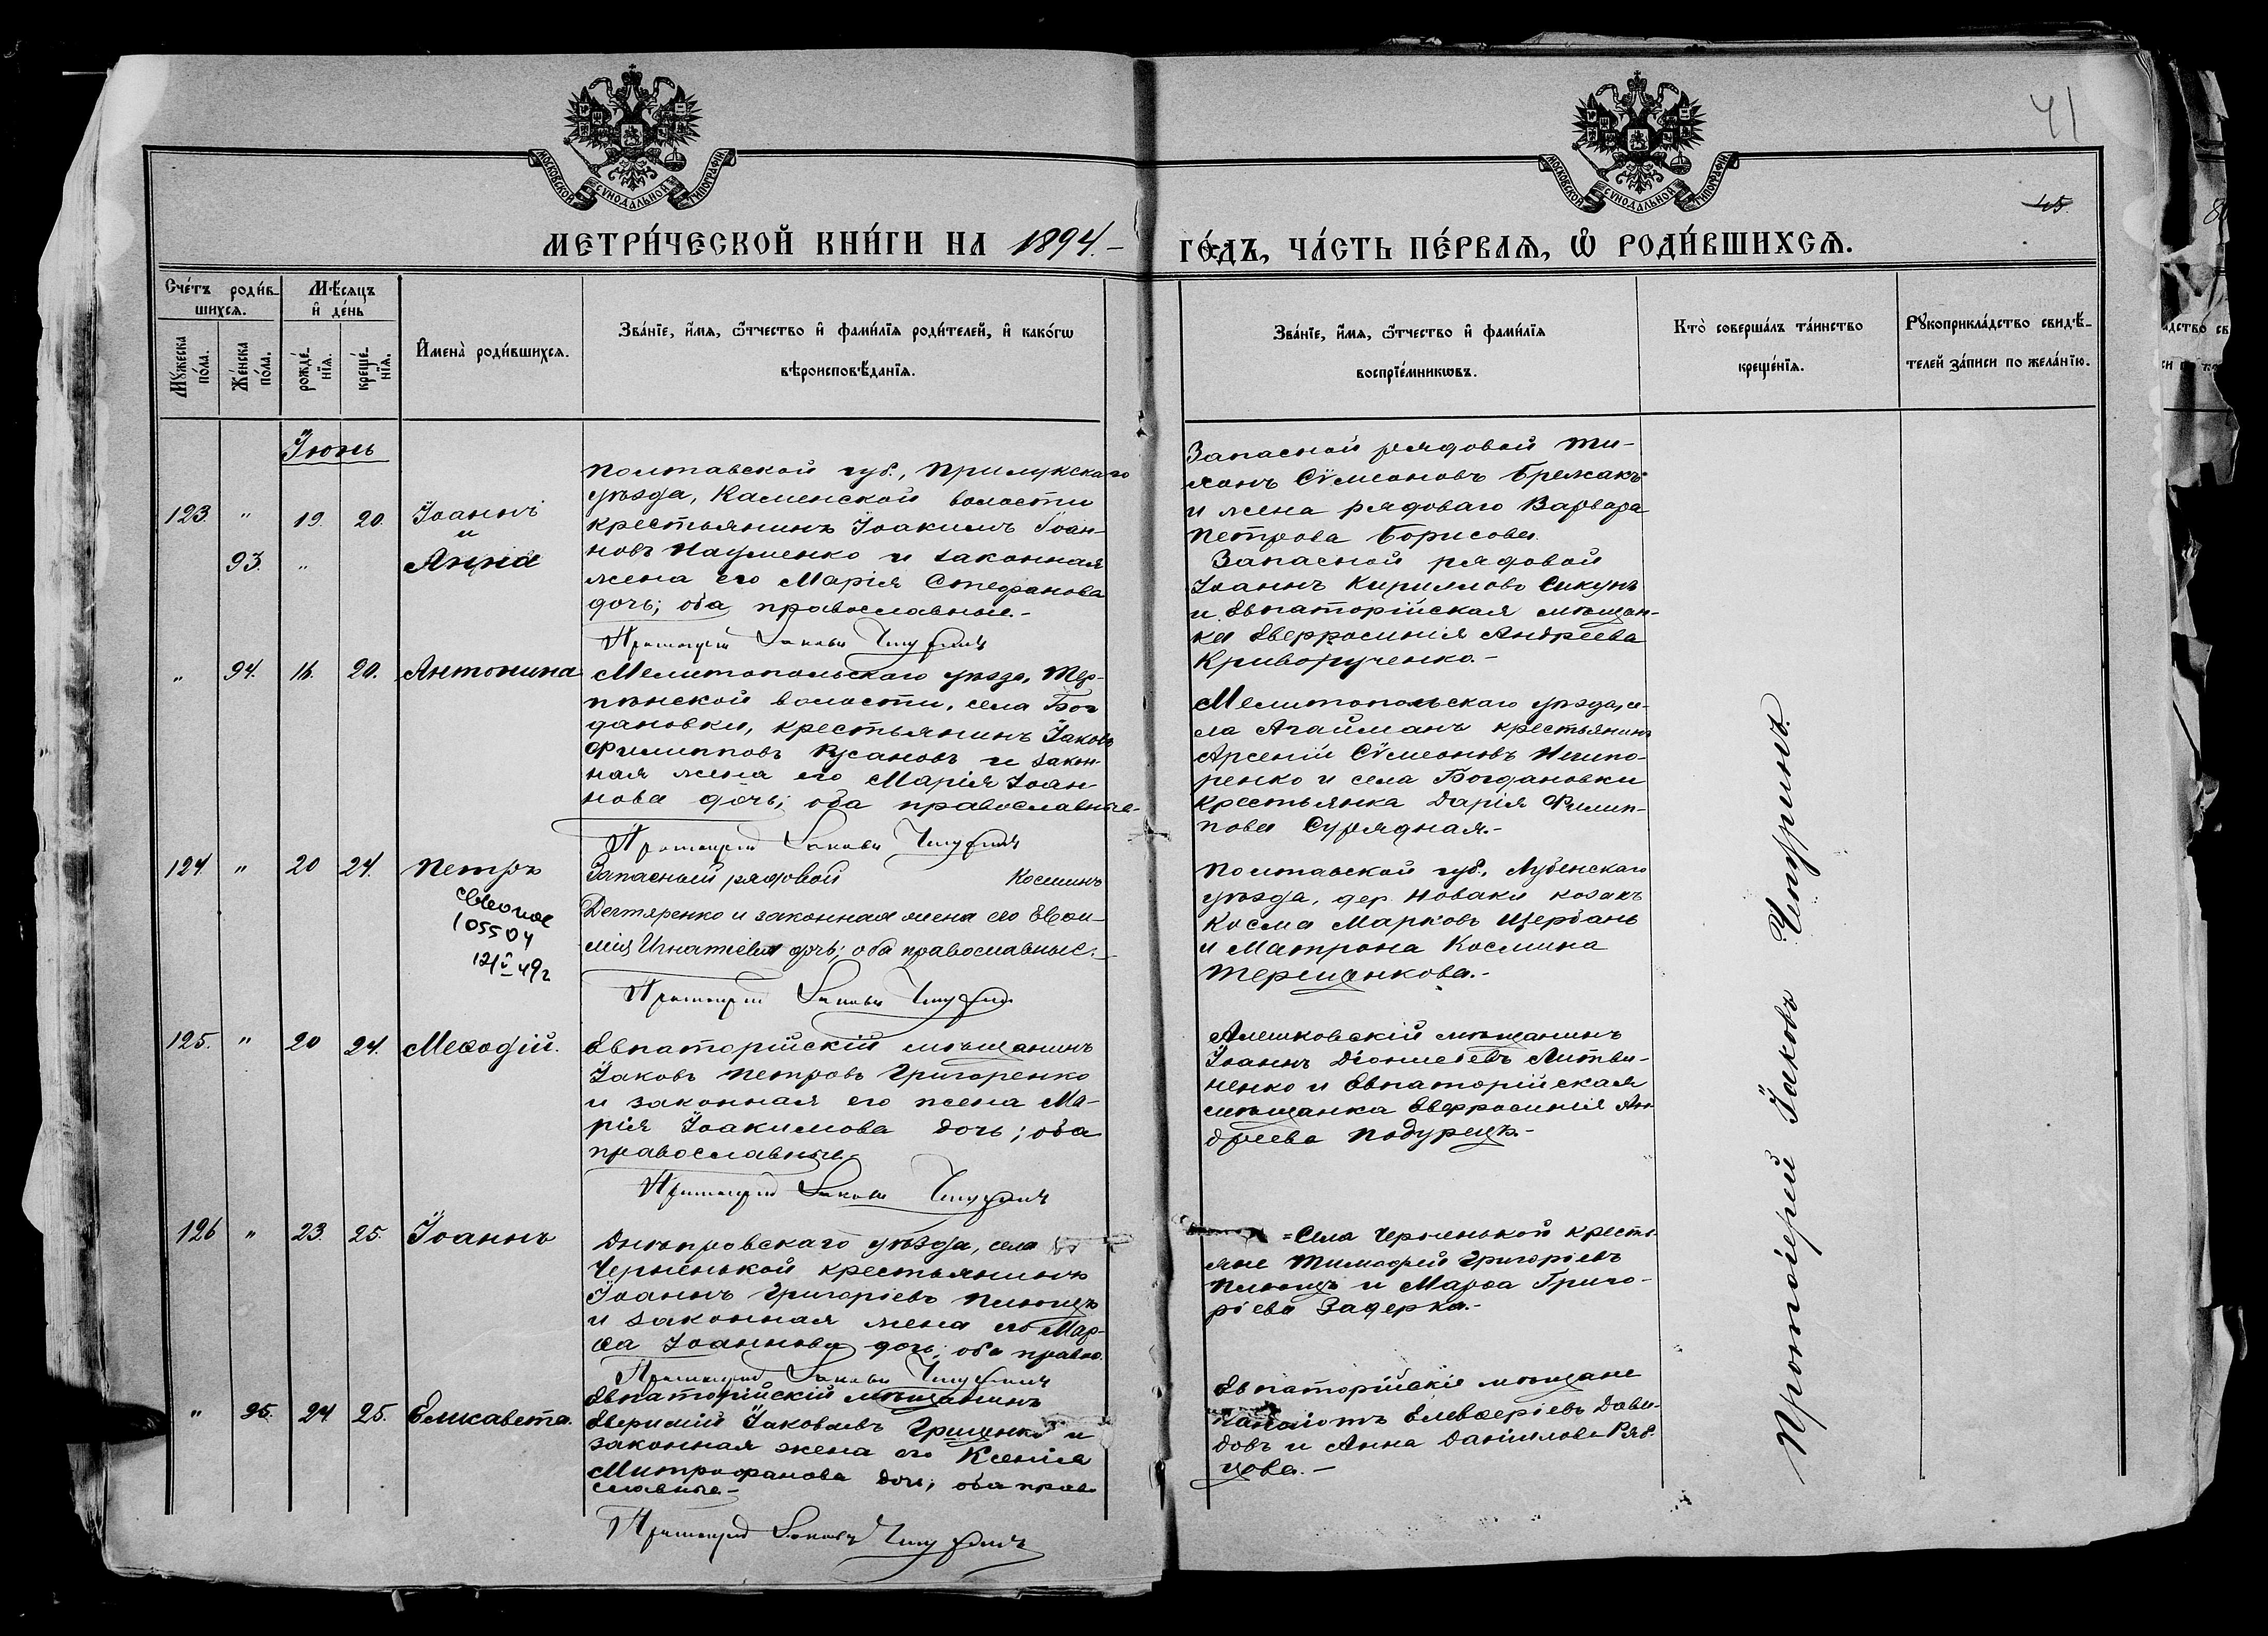 41
45.
МОСКОВСКОЙ СѴНОДАЛЬНОЙ ТИПОГРАФІИ
МОСКОВСКОЙ СѴНОДАЛЬНОЙ ТИПОГРАФІИ
МЕТРИ́ЧЕСКОЙ КНИ́ГИ НА 1894.-
ГО́ДЪ, ЧА́СТЬ ПЕ́РВАѦ, Ѡ҆ РОДИ́ВШИХСѦ.
Сче́тъ роди́в-
шихсѧ.
Мꙋ́жеска по́ла.
Же́нска по́ла.
Мѣ́сѧцъ
и҆ де́нь
рожде́-нїѧ.
креще́-нїѧ.
И҆мена̀ роди́вшихсѧ.
Зва́нїе, и҆́мѧ, ѻ҆́тчество и҆ фами́лїѧ роди́телей, и҆ како́гѡ
вѣроисповѣ́данїѧ.
Зва́нїе, и҆́мѧ, ѻ҆́тчество и҆ фами́лїѧ
воспрїе́мникѡвъ.
Кто̀ соверша́лъ та́инство
креще́нїѧ.
Рꙋкоприкла́дство свидѣ́-
телей за́писи по жела́нїю.
Іюнь
123. " 19. 20. Іоаннъ
и
93. " Анна
Полтавской губ., Прилукскаго
уѣзда, Каменской волости
крестьянинъ Іоакимъ Іоан-
новъ Науменко и законная
жена его Марія Стефанова
дочь; оба православные.-
Протоіерей Іаковъ Чепуринъ
Запасной рядовой Ти-
хонъ Сѵмеоновъ Брежакъ
и жена рядоваго Варвара
Петрова Борисова.
Запасной рядовой
Іоаннъ Кирилловъ Сикунъ
и Евпаторійская мѣщан-
ка Евфросинія Андреева
Криворученко.-
" 94. 16. 20. Антонина
Мелитопольскаго уѣзда, Тер-
пѣнской волости, села Бог
дановки, крестьянинъ Іаковъ
Филипповъ Русановъ и закон-
ная жена его Марія Іоан-
нова дочь; оба православные-
Протоіерей Іаковъ Чепуринъ
Мелитопольскаго уѣзда, се-
ла Агайманъ крестьянинъ
Арсеній Сѵмеоновъ Нечипо-
ренко и села Богдановки
крестьянка Дарія Филип-
пова Сурядная.-
124. " 20 24. Петръ
105504
Запасный рядовой Косминъ
Дегтяренко и законная жена его Евфи-
мія Игнатіева дочь; оба православные.-
Протоіерей Іаковъ Чепуринъ
Полтавской губ., Лубенскаго
уѣзда, дер. Новаки козакъ
Косма Марковъ Щербань
и Матрона Космина
Терещенкова.-
125. " 20 24. Меѳодій.
Евпаторійскій мѣщанинъ
Іаковъ Петровъ Григоренко
и законная его жена Ма-
рія Іоакимова дочь; оба
православные.
Протоіерей Іаковъ Чепуринъ
Алешковскій мѣщанинъ
Іоаннъ Діонисіевъ Литви-
ненко и Евпаторійская
мѣщанка Евфросинія Ан
дреева Подурецъ.-
126 " 23. 25. Іоаннъ
Днѣпровскаго уѣзда, села
Черненькой крестьянинъ
Іоаннъ Григоріевъ Плющъ
и законная жена его Мар-
ѳа Іоаннова дочь; оба правос.
Протоіерей Іаковъ Чепуринъ
=Села Черненькой кресть-
яне Тимофей Григоріевъ
Плющъ и Марѳа Григо-
ріева Задерка.-
" 95. 24 25. Елисавета.
Евпаторійскій мѣщанинъ
Евфимій Іаковлевъ Грищенко и
законная жена его Ксенія
Митрофанова дочь; оба право
славные.-
Протоіерей Іаковъ Чепуринъ
Евпаторійскіе мѣщане
Панаіотъ Елевферіевъ Дави-
довъ и Анна Даніилова Ряб-
цова.-
Протоіерей Іаковъ Чепуринъ.